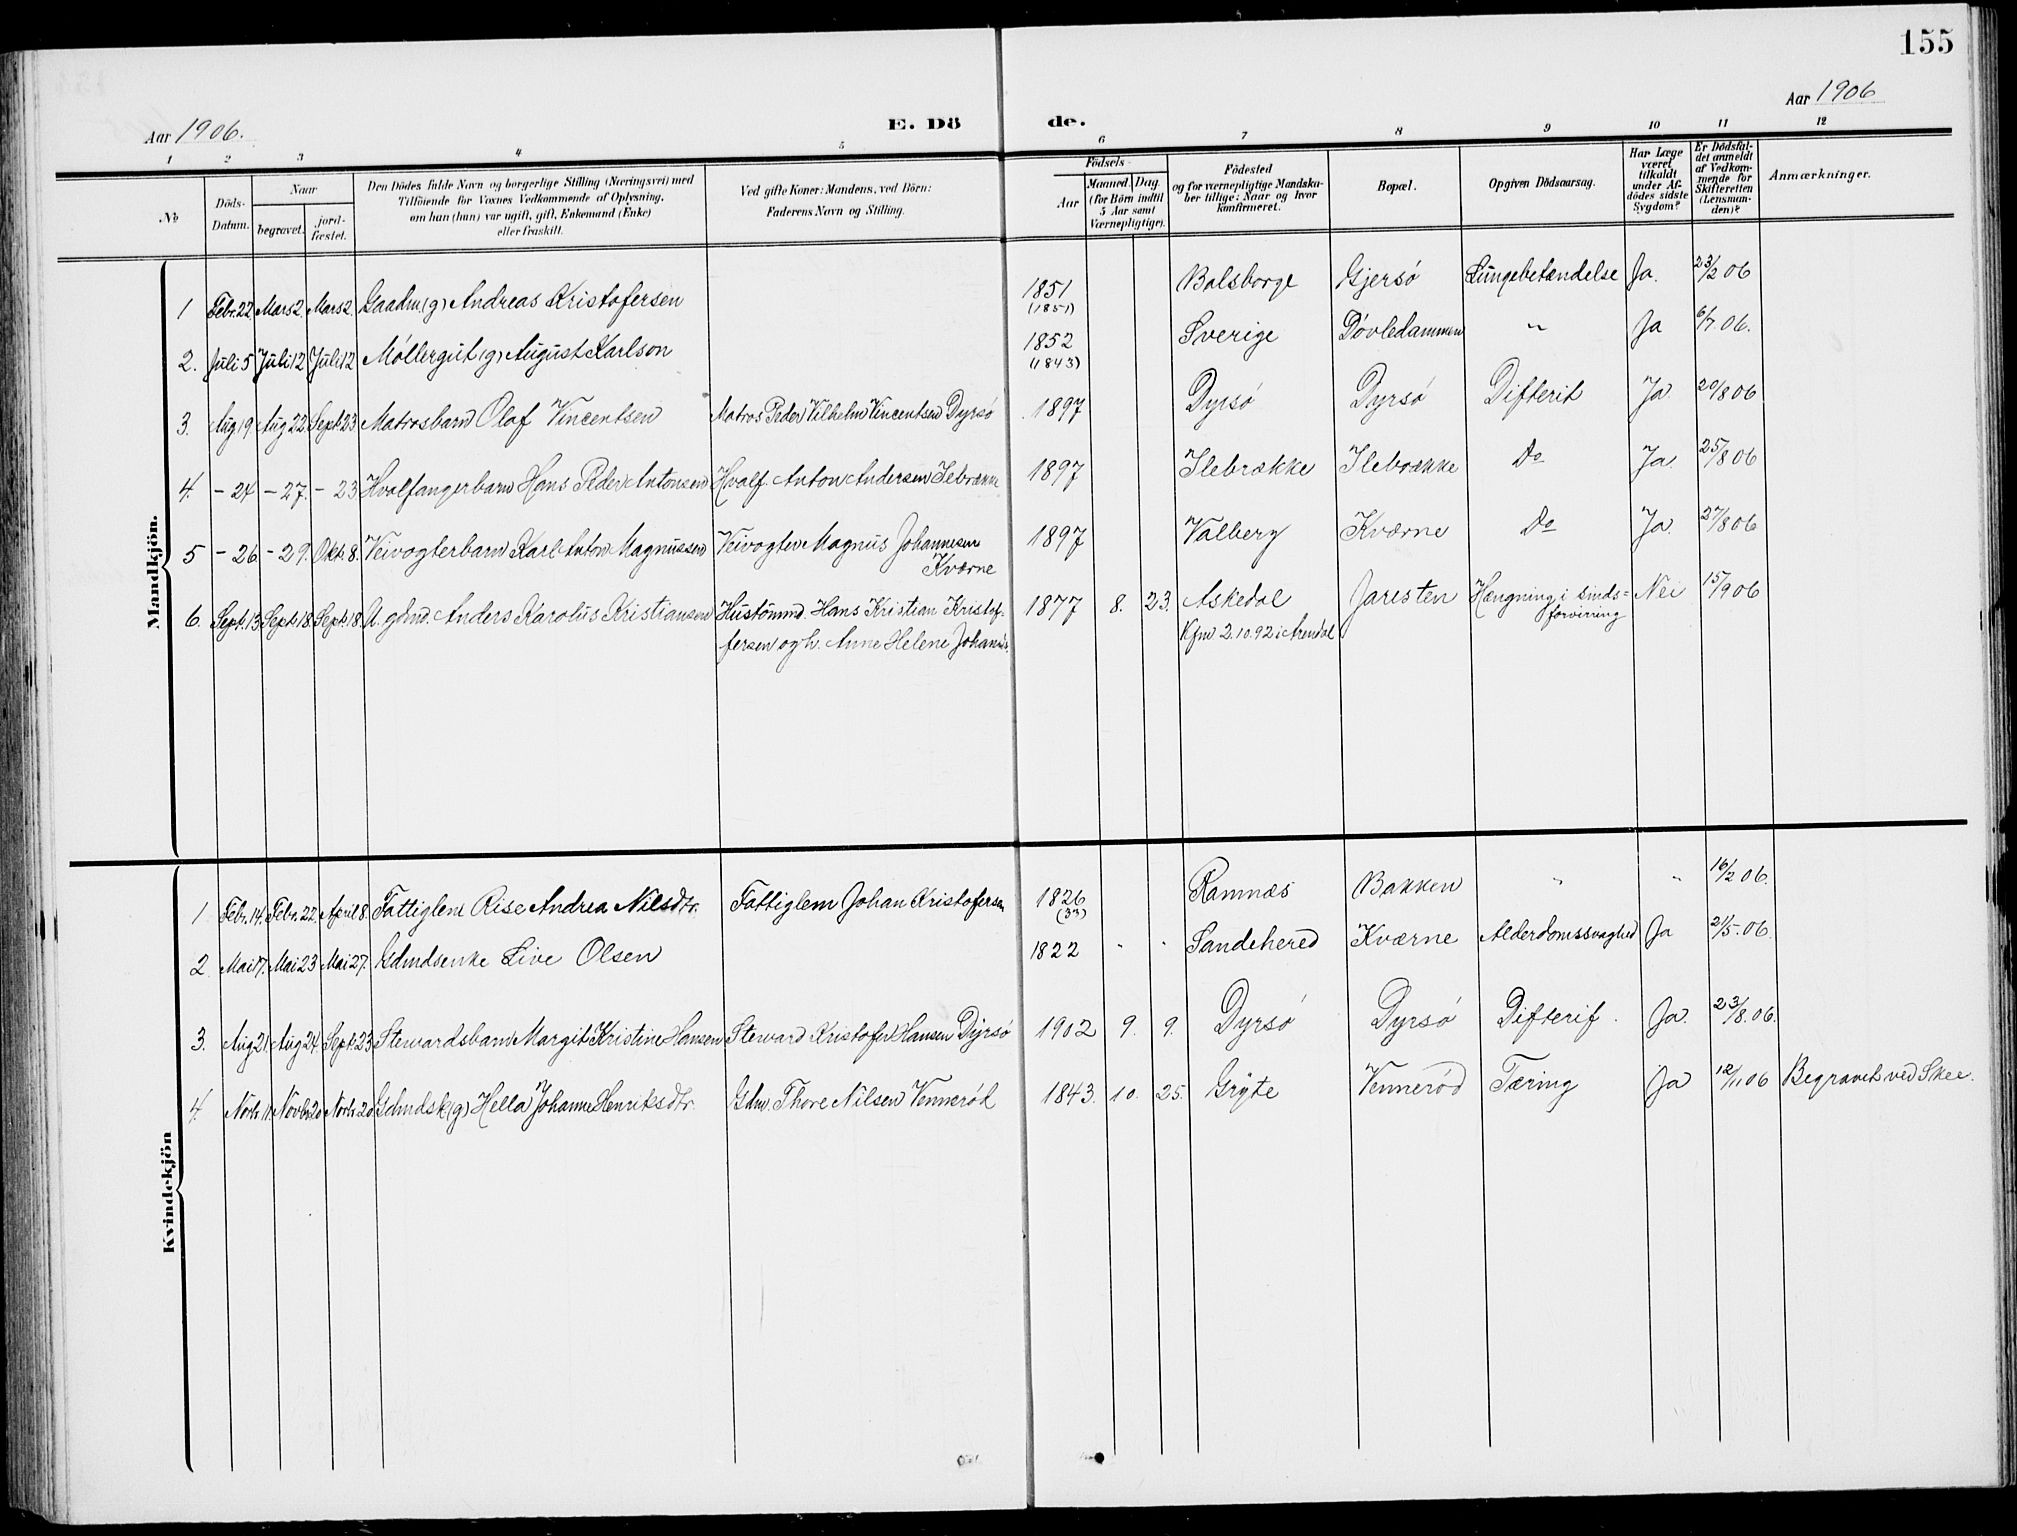 155
Aar 1906.
E. Dö
de.
Aar 1906
1 2 3 4 5 6 7 8 9 10 11 12
No
Döds-Datum.
Naar
begravet.
jord-fæstet.
Den Dödes fulde Navn og borgerlige Stilling (Næringsvei) med
Tilföiende for Voxnes Vedkommende af Oplysning,
om han (hun) var ugift, gift, Enkemand (Enke)
eller fraskilt.
Ved gifte Koner: Mandens, ved Börn:
Faderens Navn og Stilling.
Födsels-
Aar
Maaned. Dag.
(for Börn indtil
5 Aar samt
Værnepligtige).
Födested
og for værnepligtige Mandska-
ber tillige: Naar og hvor
konfirmeret.
Bopæl.
Opgiven Dödsaarsag.
Har Læge
været
tilkaldt
under Af-
dödes sidste
Sygdom?
Er Dödsfal-
det anmeldt
af Vedkom-
mende for
Skifteretten
(Lensman-
den)?
Anmærkninger.
Mandkjön.
1 Febr. 22. Mars 2 Mars 2. Gaadm. (g) Andreas Kristofersen 1851 Bolsborge Gjersø Lungebetændelse Ja. 23/2 06
(1851)
2. Juli 5 Juli 12 Juli 12 Møllergut (g) August Karlson 1852 Sverige Døvledammen " Ja 6/7. 06.
(1843)
3. Aug 19 Aug 22. Sept. 23 Matrosbarn Olaf Vincentsen Matros Peder Vilhelm Vincentsen Dyrsø 1897 Dyrsø Dyrsø Difterit Ja 20/8 06
4. - 24 - 27. - 23 Hvalfangerbarn Hans Peder Antonsen Hvalf. Anton Andersen Ilebrække 1897 Ilebrække Ilebrække Do Ja. 25/8 06
5 - 26. - 29. Okt. 8. Veivogterbarn Karl Anton Magnussen Veivogter Magnus Johannesen 1897 Valberg Kværne Do Ja. 27/8 06
Kværne
6. Sept. 13 Sept. 18 Sept. 18. U. gdmd. Anders Karolus Kristiansen Hustömmd. Hans Kristian Kristof- 1877 8. 23. Askedal Jaresten Hængning i sinds= Nei 15/9 06
forvirring
fersen og h. Anne Helene Johansdr. Kfm 2.10.92 i Arendal
Kvindekjön
1 Febr. 14. Febr. 22. April 8. Fattiglem Rise Andrea Nilsdtr. Fattiglem Johan Kristofersen 1826 Ramnæs Bakken " " 16/2 06.
(33)
2. Mai 17. Mai 23 Mai 27. Gdmdsenke Live Olsen 1822 " " Sandehered Kværne Alderdomssvaghed Ja 21/5. 06.
3. Aug 21 Aug 24. Sept. 23 Stewardsbarn Margit Kristine Hansen Steward Kristofer Hansen Dyrsø 1902 9. 9. Dyrsø Dyrsø Difterit. Ja. 23/8. 06.
4. Novb. 11. Novb. 20 Novb. 20 Gdmdsk (g) Hella Johanne Henriksdtr. Gdm. Thore Nilsen Vennerød 1843. 10. 25. Gryte Vennerød Tæring Ja 12/11 06 Begravet ved Skee.